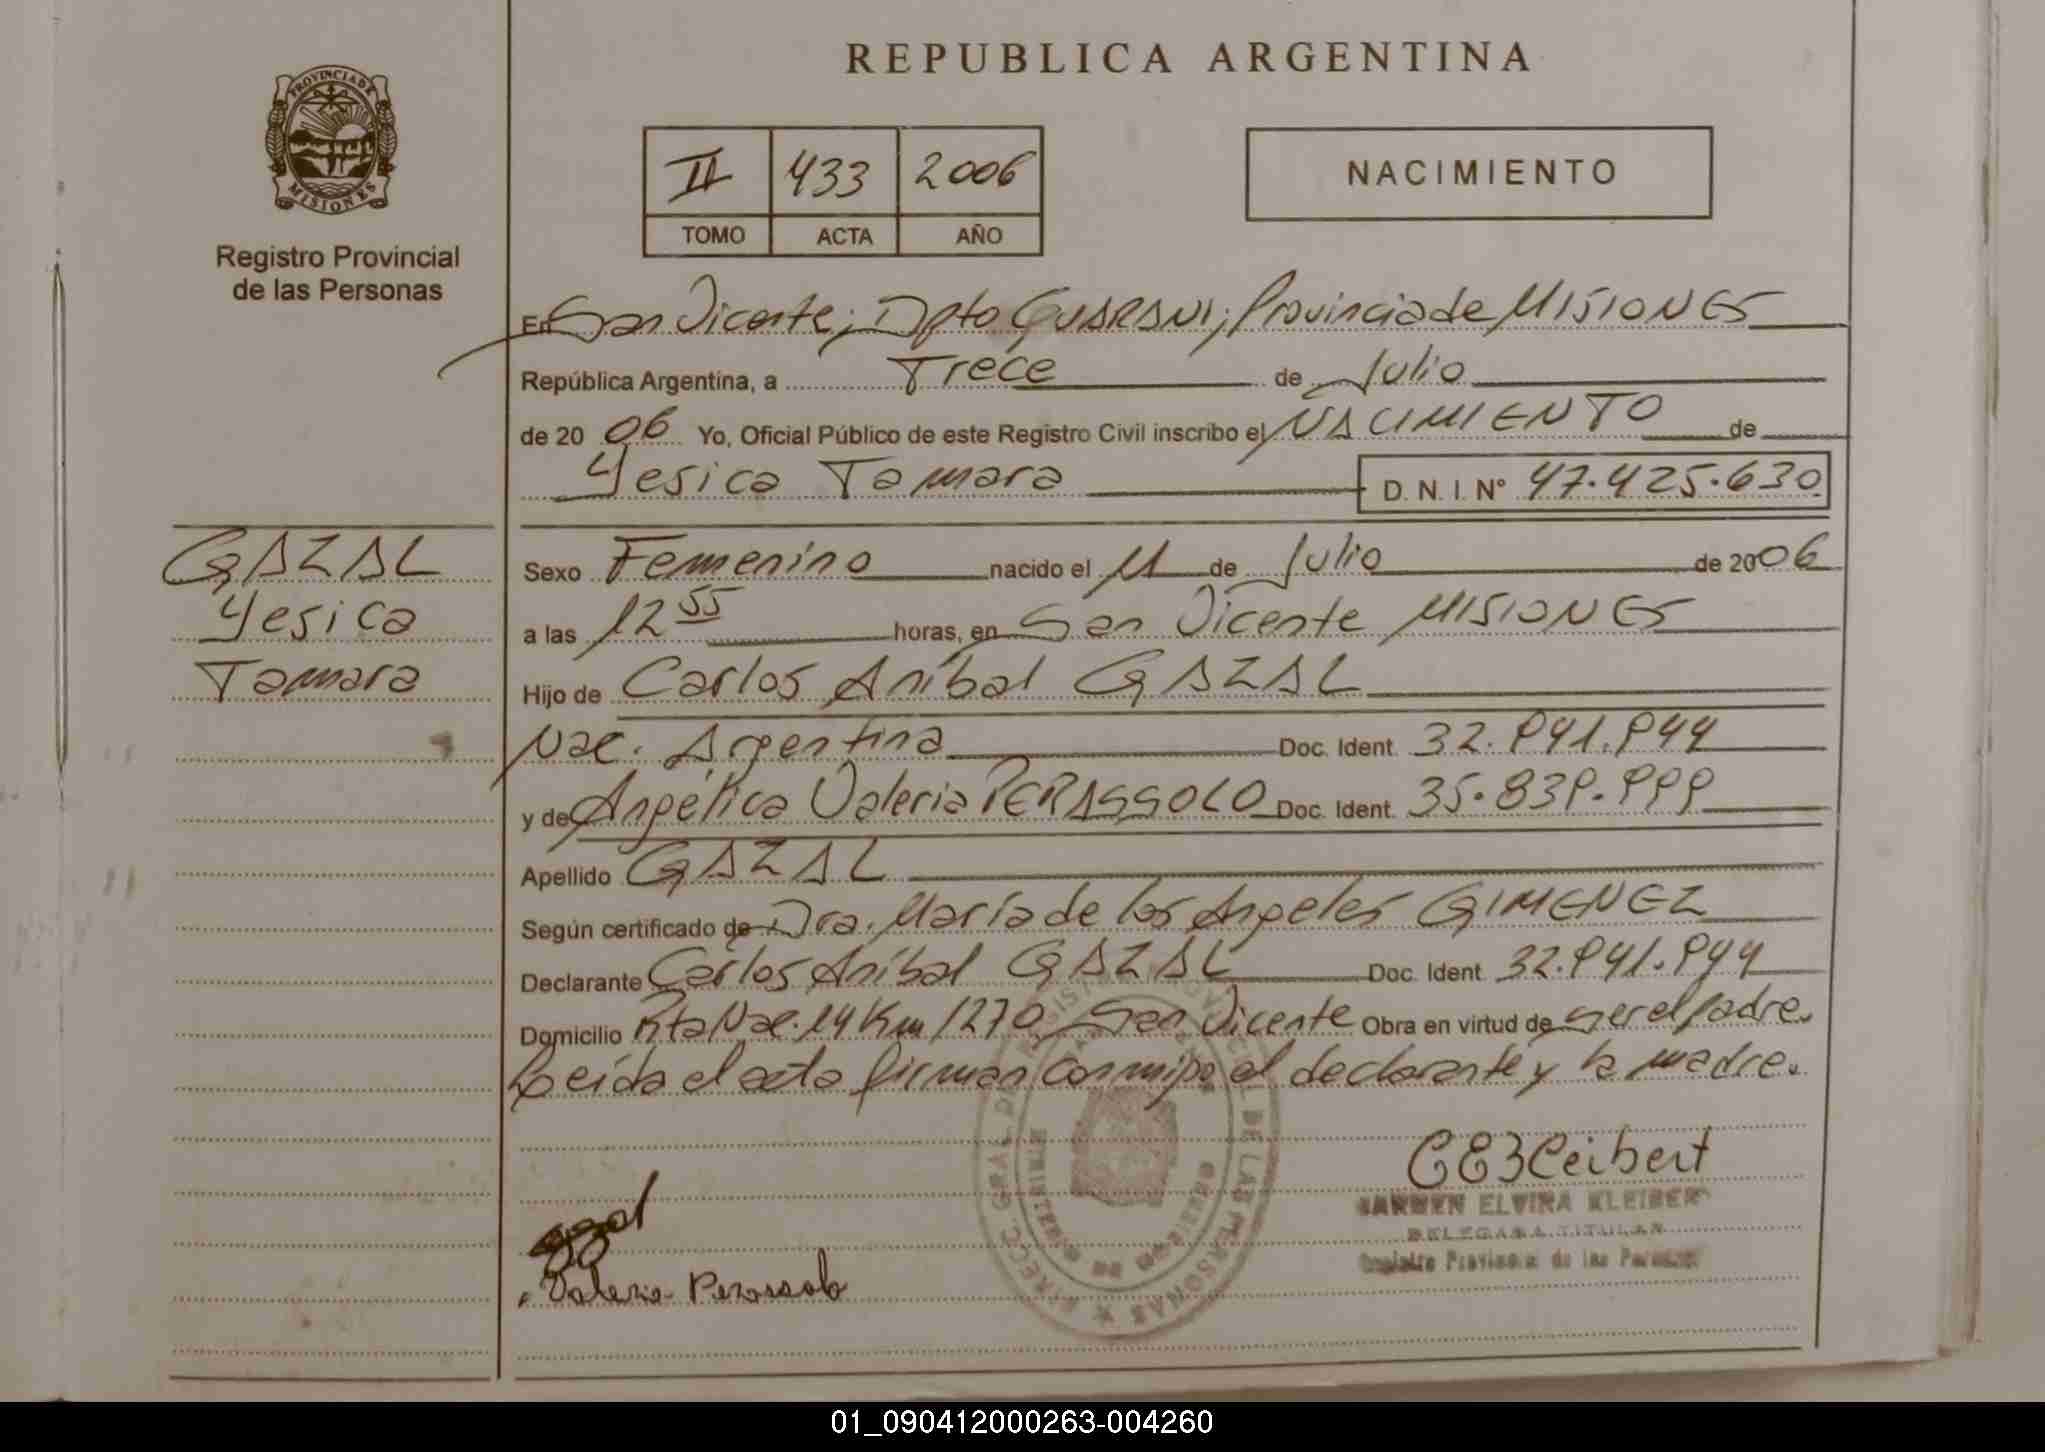 REPUBLICA ARGENTINA
PROVINCIA DE
MISIONES
Registro Provincial
de las Personas
II 433 2006
TOMO ACTA AÑO
NACIMIENTO
En San Vicente; Dpto GUARANI; Provincia de MISIONES
República Argentina, a Trece de Julio
de 20 06 Yo, Oficial Público de este Registro Civil inscribo el NACIMIENTO de
Yesica Tamara D. N. I. Nº 47.425.630
GAZAL
Yesica
Tamara
Sexo Femenino nacido el 11 de Julio de 2006
a las 12 55 horas, en San Vicente MISIONES
Hijo de Carlos Aníbal GAZAL
Nac. Argentina Doc. Ident. 32.941.944
y de Angélica Valeria PERASSOLO Doc. Ident. 35.839.999
Apellido GAZAL
Según certificado de Dra. María de los Angeles GIMENEZ
Declarante Carlos Aníbal GAZAL Doc. Ident 32.941.944
Domicilio Rta Nac. 14 Km 1270 San Vicente Obra en virtud de ser el padre.
Leída el acta firman conmigo el declarante y la madre.
DIRECC. GRAL. DEL REGISTRO PROVINCIAL DE LAS PERSONAS
CEKleibert
CARMEN ELVIRA KLEIBER
DELEGADA TITULAR
Registro Provincial de las Personas
Valeria Perassolo
01_090412000263-004260